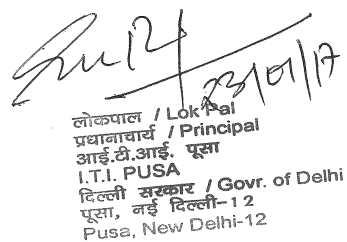 23/01/17
लोकपाल / Lok Pal
प्रधानाचार्य / Principal
आई.टी.आई. पूसा
I.T.I. PUSA
दिल्ली सरकार / Govr. of Delhi
पूसा, नई दिल्ली-12
Pusa, New Delhi-12